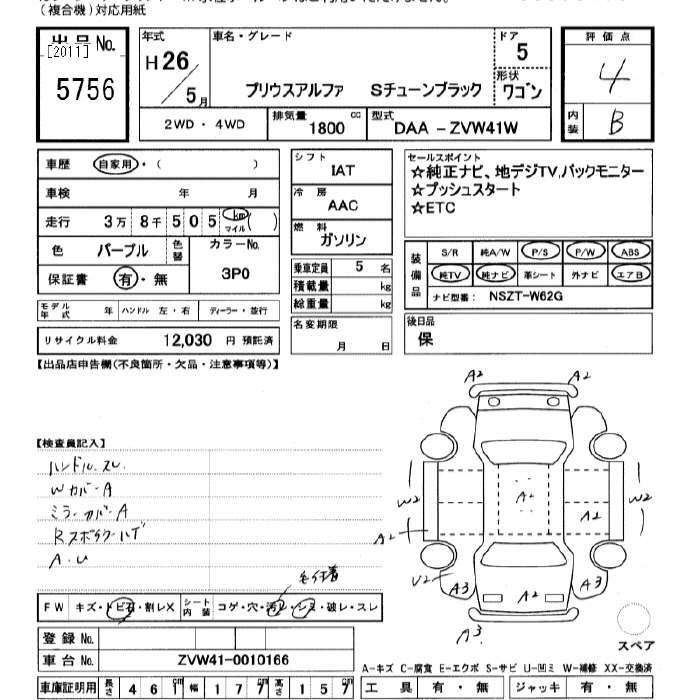 (複合機)対応用紙
出品No.
[2011]
5756
年式
H26/5月
車名・グレード
プリウスアルファ Sチューンブラック
ドア
5
形状
ワゴン
評価点
4
内装
B
2WD・4WD
排気量
1800 cc
型式
DAA-ZVW41W
車歴 自家用・( )
車検 年 月
走行 3万 8千 5 0 5 km マイル( )
色 パープル 色替
カラーNo.
3P0
保証書 有・無
シフト
IAT
冷房
AAC
燃料
ガソリン
乗車定員 5 名
積載量 kg
総重量 kg
名変期限
月 日
セールスポイント
☆純正ナビ、地デジTV,バックモニター
☆プッシュスタート
☆ETC
装備品
S/R 純A/W P/S P/W ABS
純TV 純ナビ 革シート 外ナビ エアB
ナビ型番: NSZT-W62G
後日品
保
モデル年式 年 ハンドル 左・右 ディーラー・並行
リサイクル料金 12,030 円 預託済
【出品店申告欄(不良箇所・欠品・注意事項等)】
【検査員記入】
ハンドル.スレ
Wカバー A
ミラーカバー A
A.U
FW キズ・トビ石・割レX シート内装 コゲ・穴・汚レ・シミ・破レ・スレ
A2 A2
W2 A2 W2
A2 A2
U2 A3 A2 A3
A3
スペア
登録No.
車台No. ZVW41-0010166
A-キズ C-腐食 E-エクボ S-サビ U-凹ミ W-補修 XX-交換済
車庫証明用 長さ 461cm 幅 177cm 高さ 157cm
工具 有・無 ジャッキ 有・無